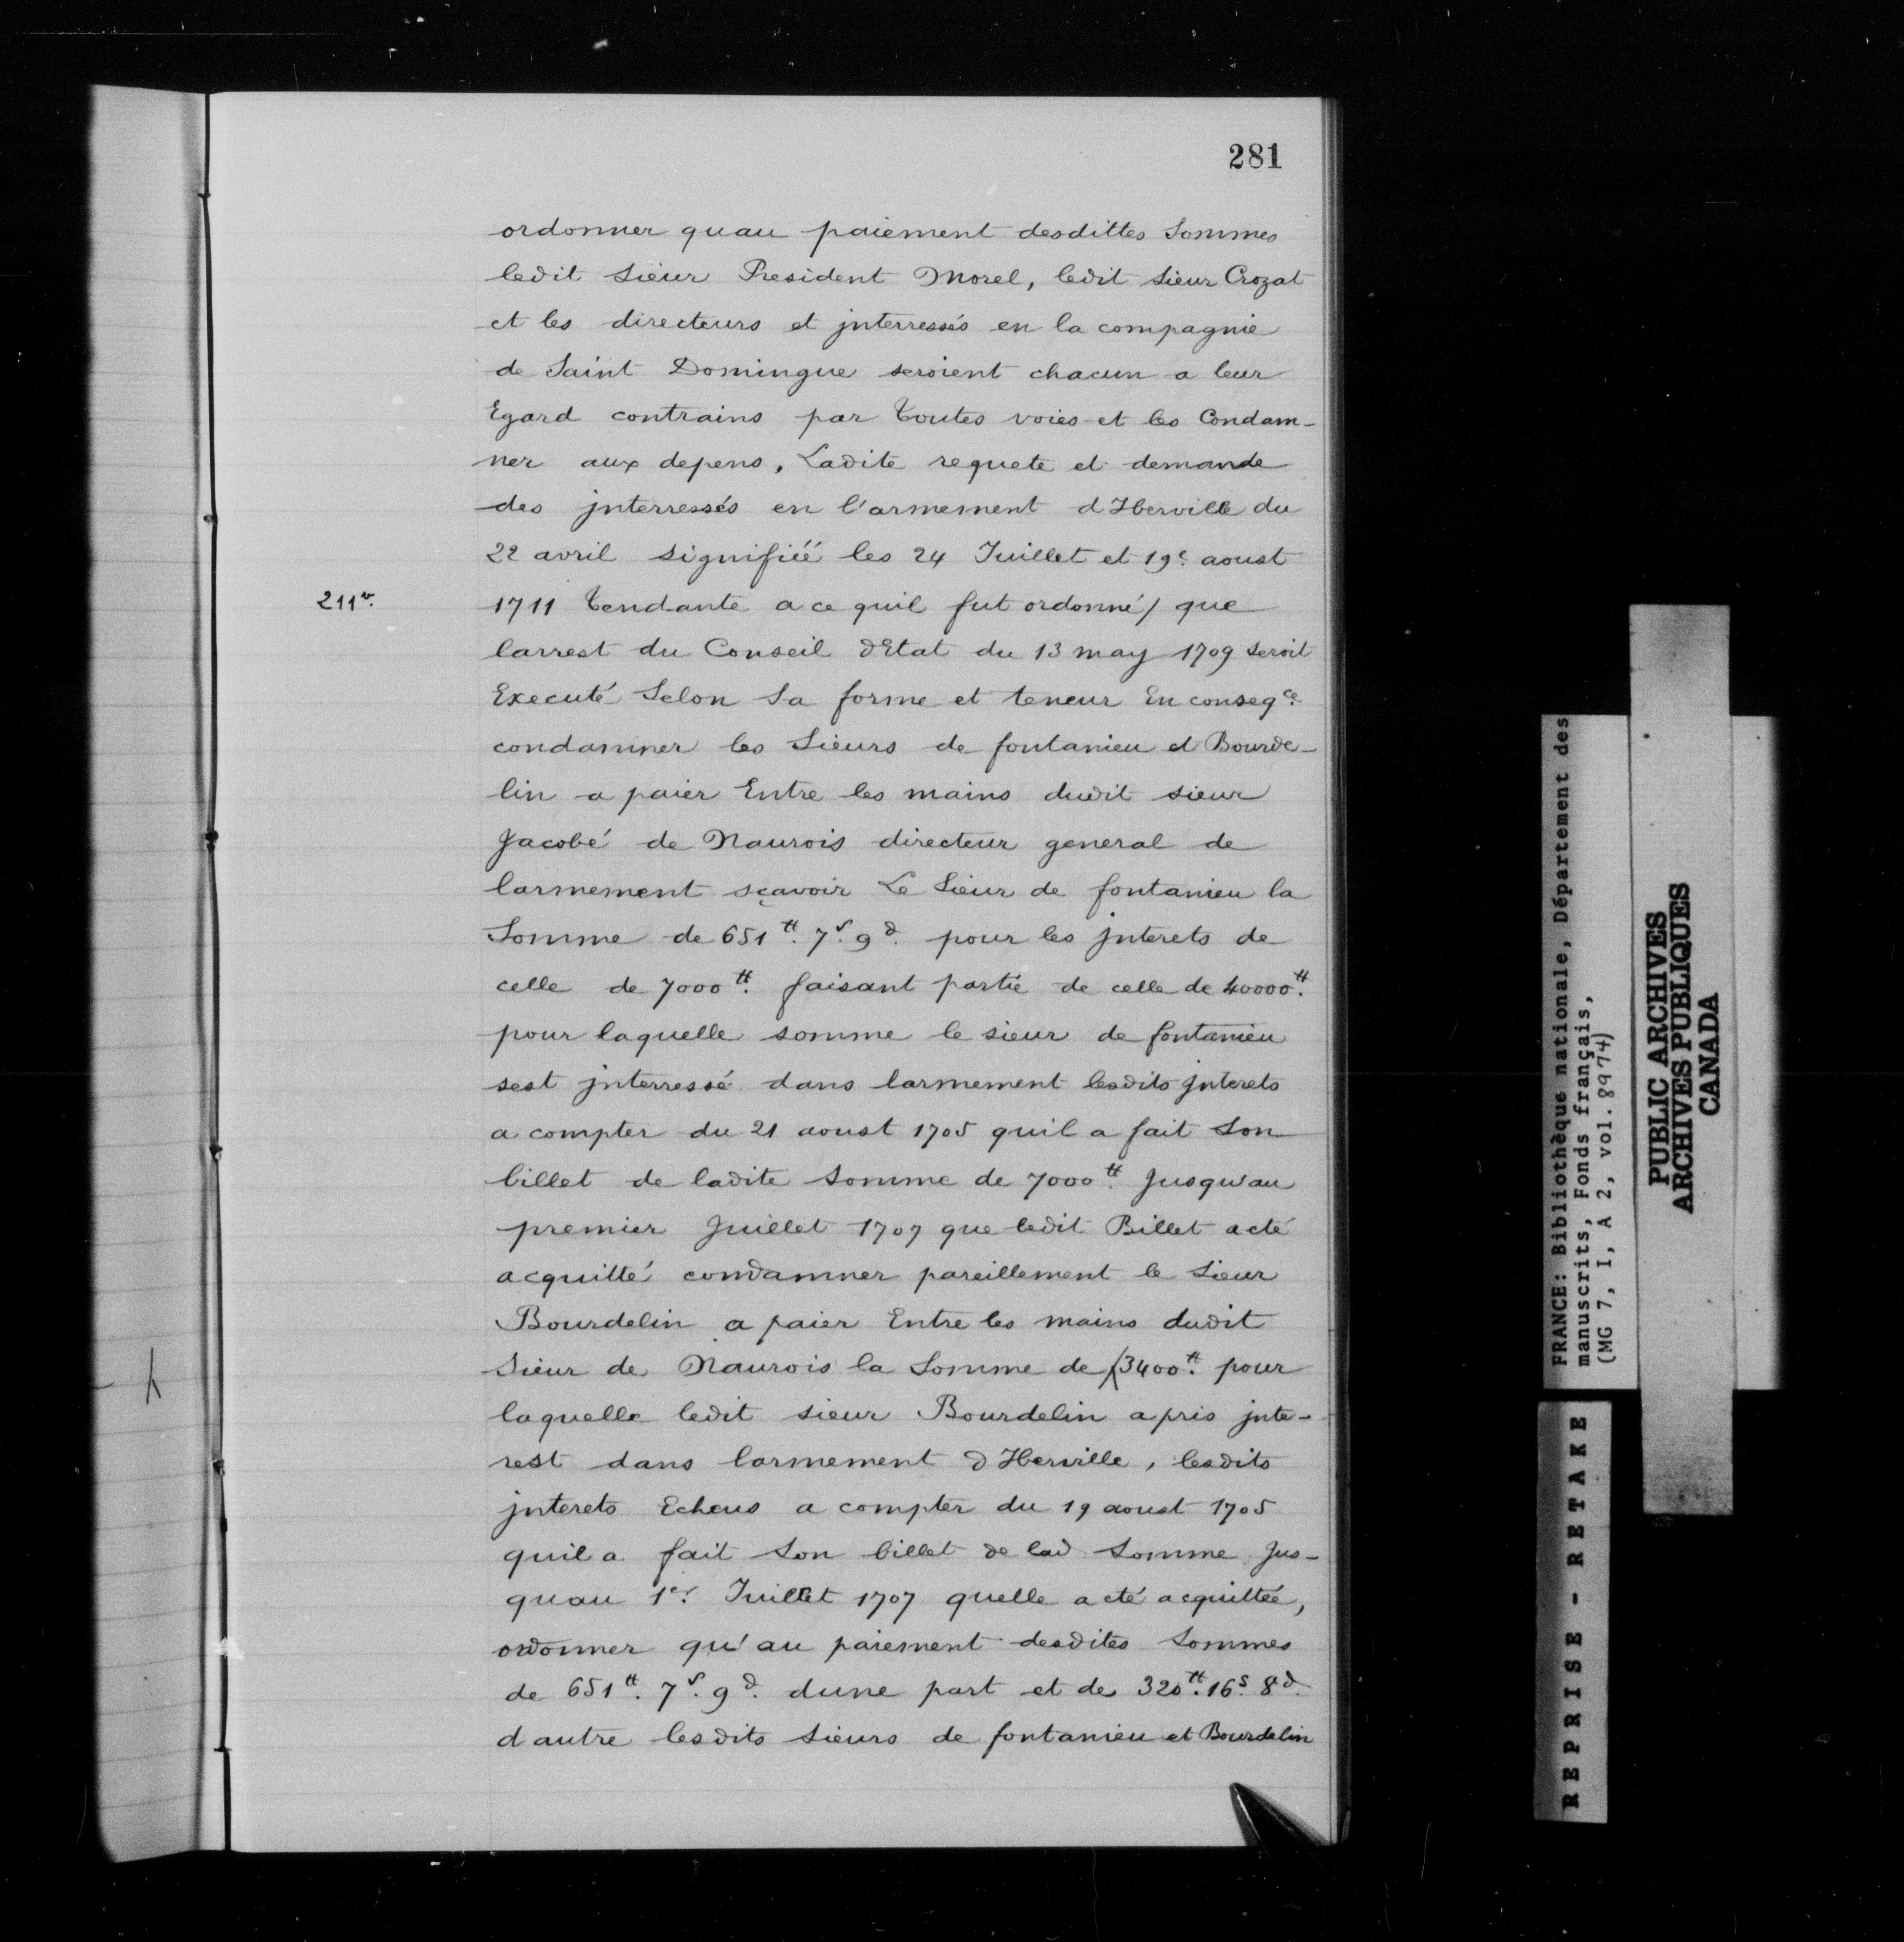 281
ordonner quau paiement desdittes Sommes
ledit Sieur President Morel, ledit Sieur Crozat
et les directeurs et jnterressés en la compagnie
de Saint Domingue seroient chacun a leur
Egard contrains par toutes voies et les Condam-
ner aux depens, Ladite requete et demande
des jnterressés en l'armement d'Hberville du
22 avril signifiée les 24 Juillet et 19e. aoust
211v. 1711 tendante a ce quil fut ordonné/ que
larrest du Conseil dEtat du 13 may 1709 seroit
Executé Selon Sa forme et teneur En conseqce.
condamner les Sieurs de fontanieu et Bourde-
lin a paier Entre les mains dudit sieur
Jacobé de Naurois directeur general de
larmement sçavoir Le Sieur de fontanieu la
Somme de 651tt. 7s. 9d. pour les jnterets de
celle de 7000tt. faisant partie de celle de 40000tt.
pour laquelle somme le sieur de fontanieu
sest jnterressé dans larmement lesdits jnterets
a compter du 21 aoust 1705 quil a fait Son
billet de ladite somme de 7000tt. Jusqu'au
premier Juillet 1707 que ledit Billet a eté
acquitté condamner pareillement le Sieur
Bourdelin a paier Entre les mains dudit
Sieur de Naurois la Somme de /3400tt. pour
laquelle ledit sieur Bourdelin a pris jnte-
rest dans larmement d'Hberville, lesdits
jnterets Echeus a compter du 19 aoust 1705
quil a fait Son billet de lad Somme Jus-
quau 1er. Juillet 1707 quelle a eté acquittée,
ordonner qu'au paiement desdites Sommes
de 651tt. 7s. 9d. dune part et de 320tt. 16s. 8d.
d autre lesdits Sieurs de fontanieu et Bourdelin
FRANCE: Bibliothèque nationale, Département des
manuscrits, Fonds français,
(MG 7, I, A 2, vol. 8974)
PUBLIC ARCHIVES
ARCHIVES PUBLIQUES
CANADA
REPRISE - RETAKE